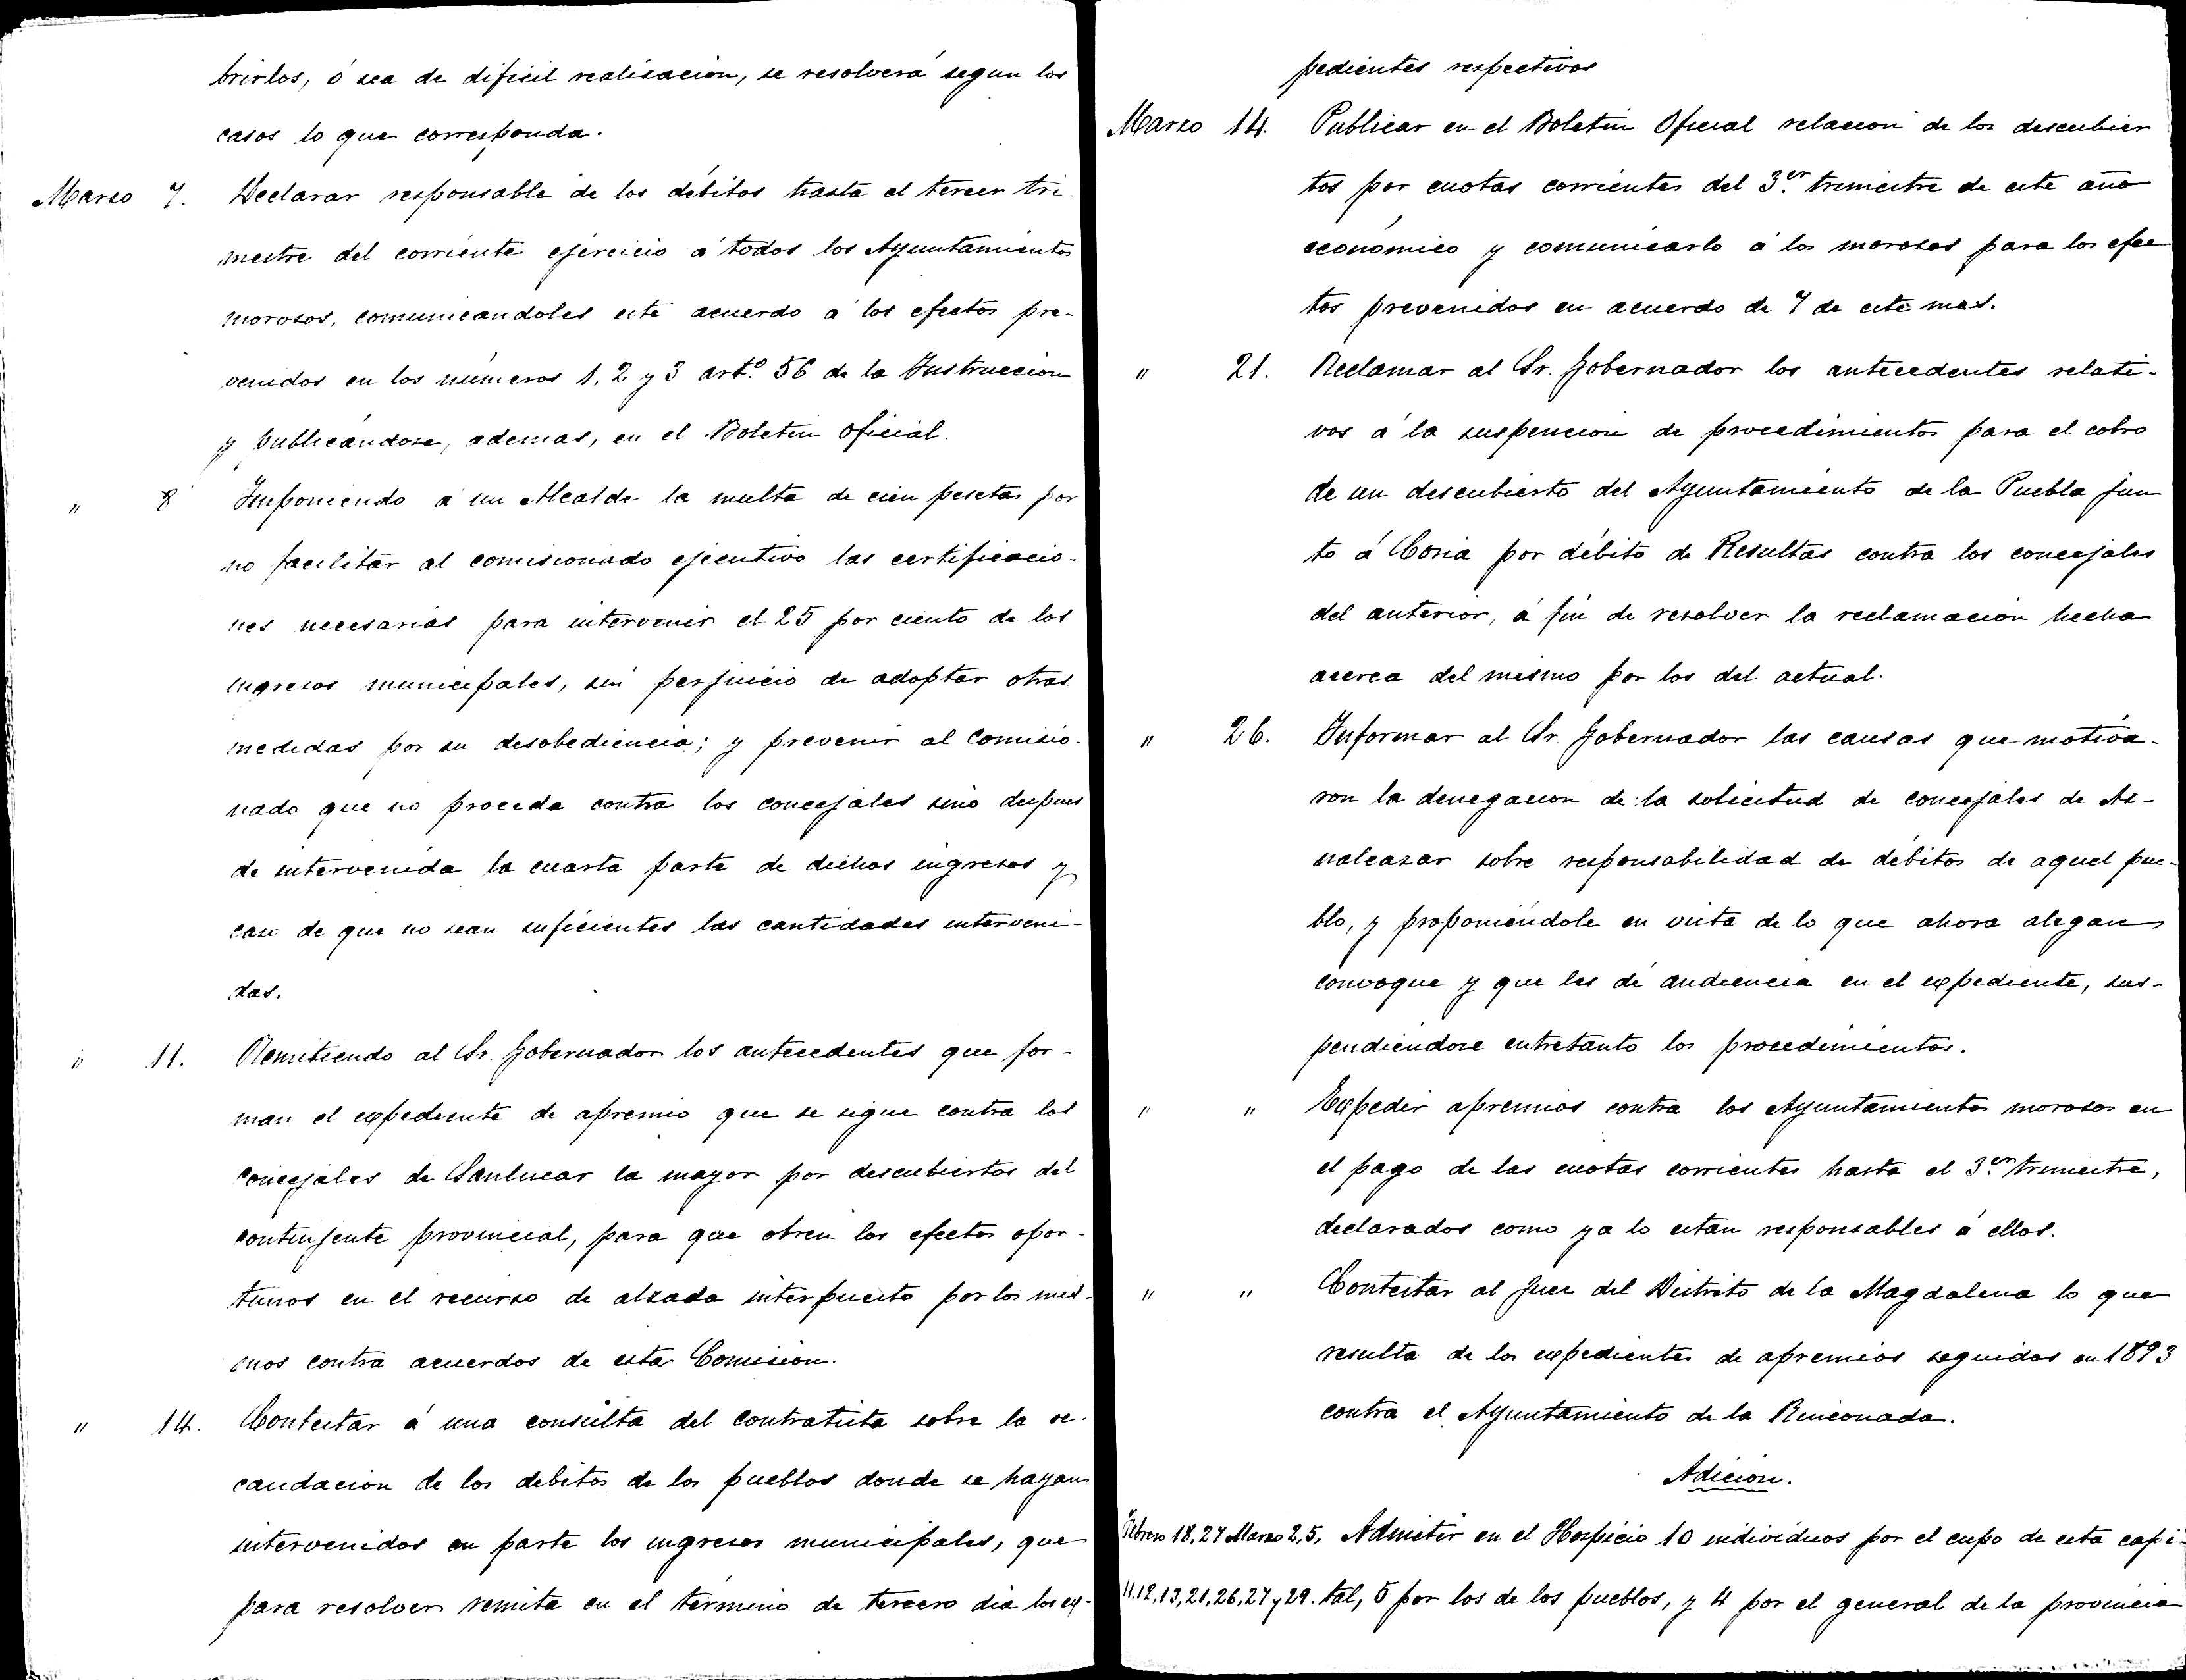 brirlos, ó sea de dificil realisacion, se resolverá segun los
casos lo que corresponda.
Marzo 7. Declarar responsable de los débitos hasta el tercer tri-
mestre del corriente ejercicio á todos los Ayuntamientos
morosos, comunicandoles este acuerdo á los efectos pre-
venidos en los números 1, 2 y 3 art.º 56 de la Instruccion
y publicándose, ademas, en el Boletin oficial.
" 8 Imponiendo á un Alcalde la multa de cien pesetas por
no facilitar al comisionado ejecutivo las certificacio-
nes necesarias para intervenir el 25 por ciento de los
ingresos municipales, sin perjuicio de adoptar otras
medidas por su desobediencia; y prevenir al comisio-
nado que no proceda contra los concejales sino despues
de intervenida la cuarta parte de dichos ingresos y
caso de que no sean suficientes las cantidades interveni-
das.
" 11. Remitiendo al Sr. Gobernador los antecedentes que for-
man el expediente de apremio que se sigue contra los
concejales de Sanlucar la mayor por descubiertos del
continjente provincial, para que obren los efectos opor-
tunos en el recurso de alzada interpuesto por los mis-
mos contra acuerdos de esta Comision.
" 14. Contestar á una consulta del contratista sobre la re-
caudacion de los debitos de los pueblos donde se hayan
intervenidos en parte los ingresos municipales, que
para resolver remita en el término de tercero dia los ex-
pedientes respectivos
Marzo 14. Publicar en el Boletin Oficial relacion de los descubier
tos por cuotas corrientes del 3.er trimestre de este año
económico y comunicarlo á los morosos para los efec
tos prevenidos en acuerdo de 7 de este mes.
" 21. Reclamar al Sr. Gobernador los antecedentes relati-
vos á la suspencion de procedimientos para el cobro
de un descubierto del Ayuntamiento de la Puebla jun
to á Coria por débito de Resultas contra los concejales
del anterior, á fin de resolver la reclamacion hecha
acerca del mismo por los del actual.
" 26. Informar al Sr. Gobernador las causas que motiva-
ron la denegacion de la solicitud de concejales de Az-
nalcazar sobre responsabilidad de débitos de aquel pue-
blo, y proponiéndole en vista de lo que ahora alegan
convoque y que les dé audiencia en el expediente, sus-
pendiéndose entretanto los procedimientos.
" " Expedir apremios contra los Ayuntamientos morosos en
el pago de las cuotas corrientes hasta el 3.er trimestre,
declarados como ya lo estan responsables á ellos.
" " Contestar al Juez del Distrito de la Magdalena lo que
resulta de los expedientes de apremios seguidos en 1893
contra el Ayuntamiento de la Rinconada.
Adicion.
Febrero 18, 27 Marzo 2, 5, Admitir en el Hospicio 10 individuos por el cupo de esta capi-
11, 12, 13, 21, 26, 27 y 29. tal, 5 por los de los pueblos, y 4 por el general de la provincia